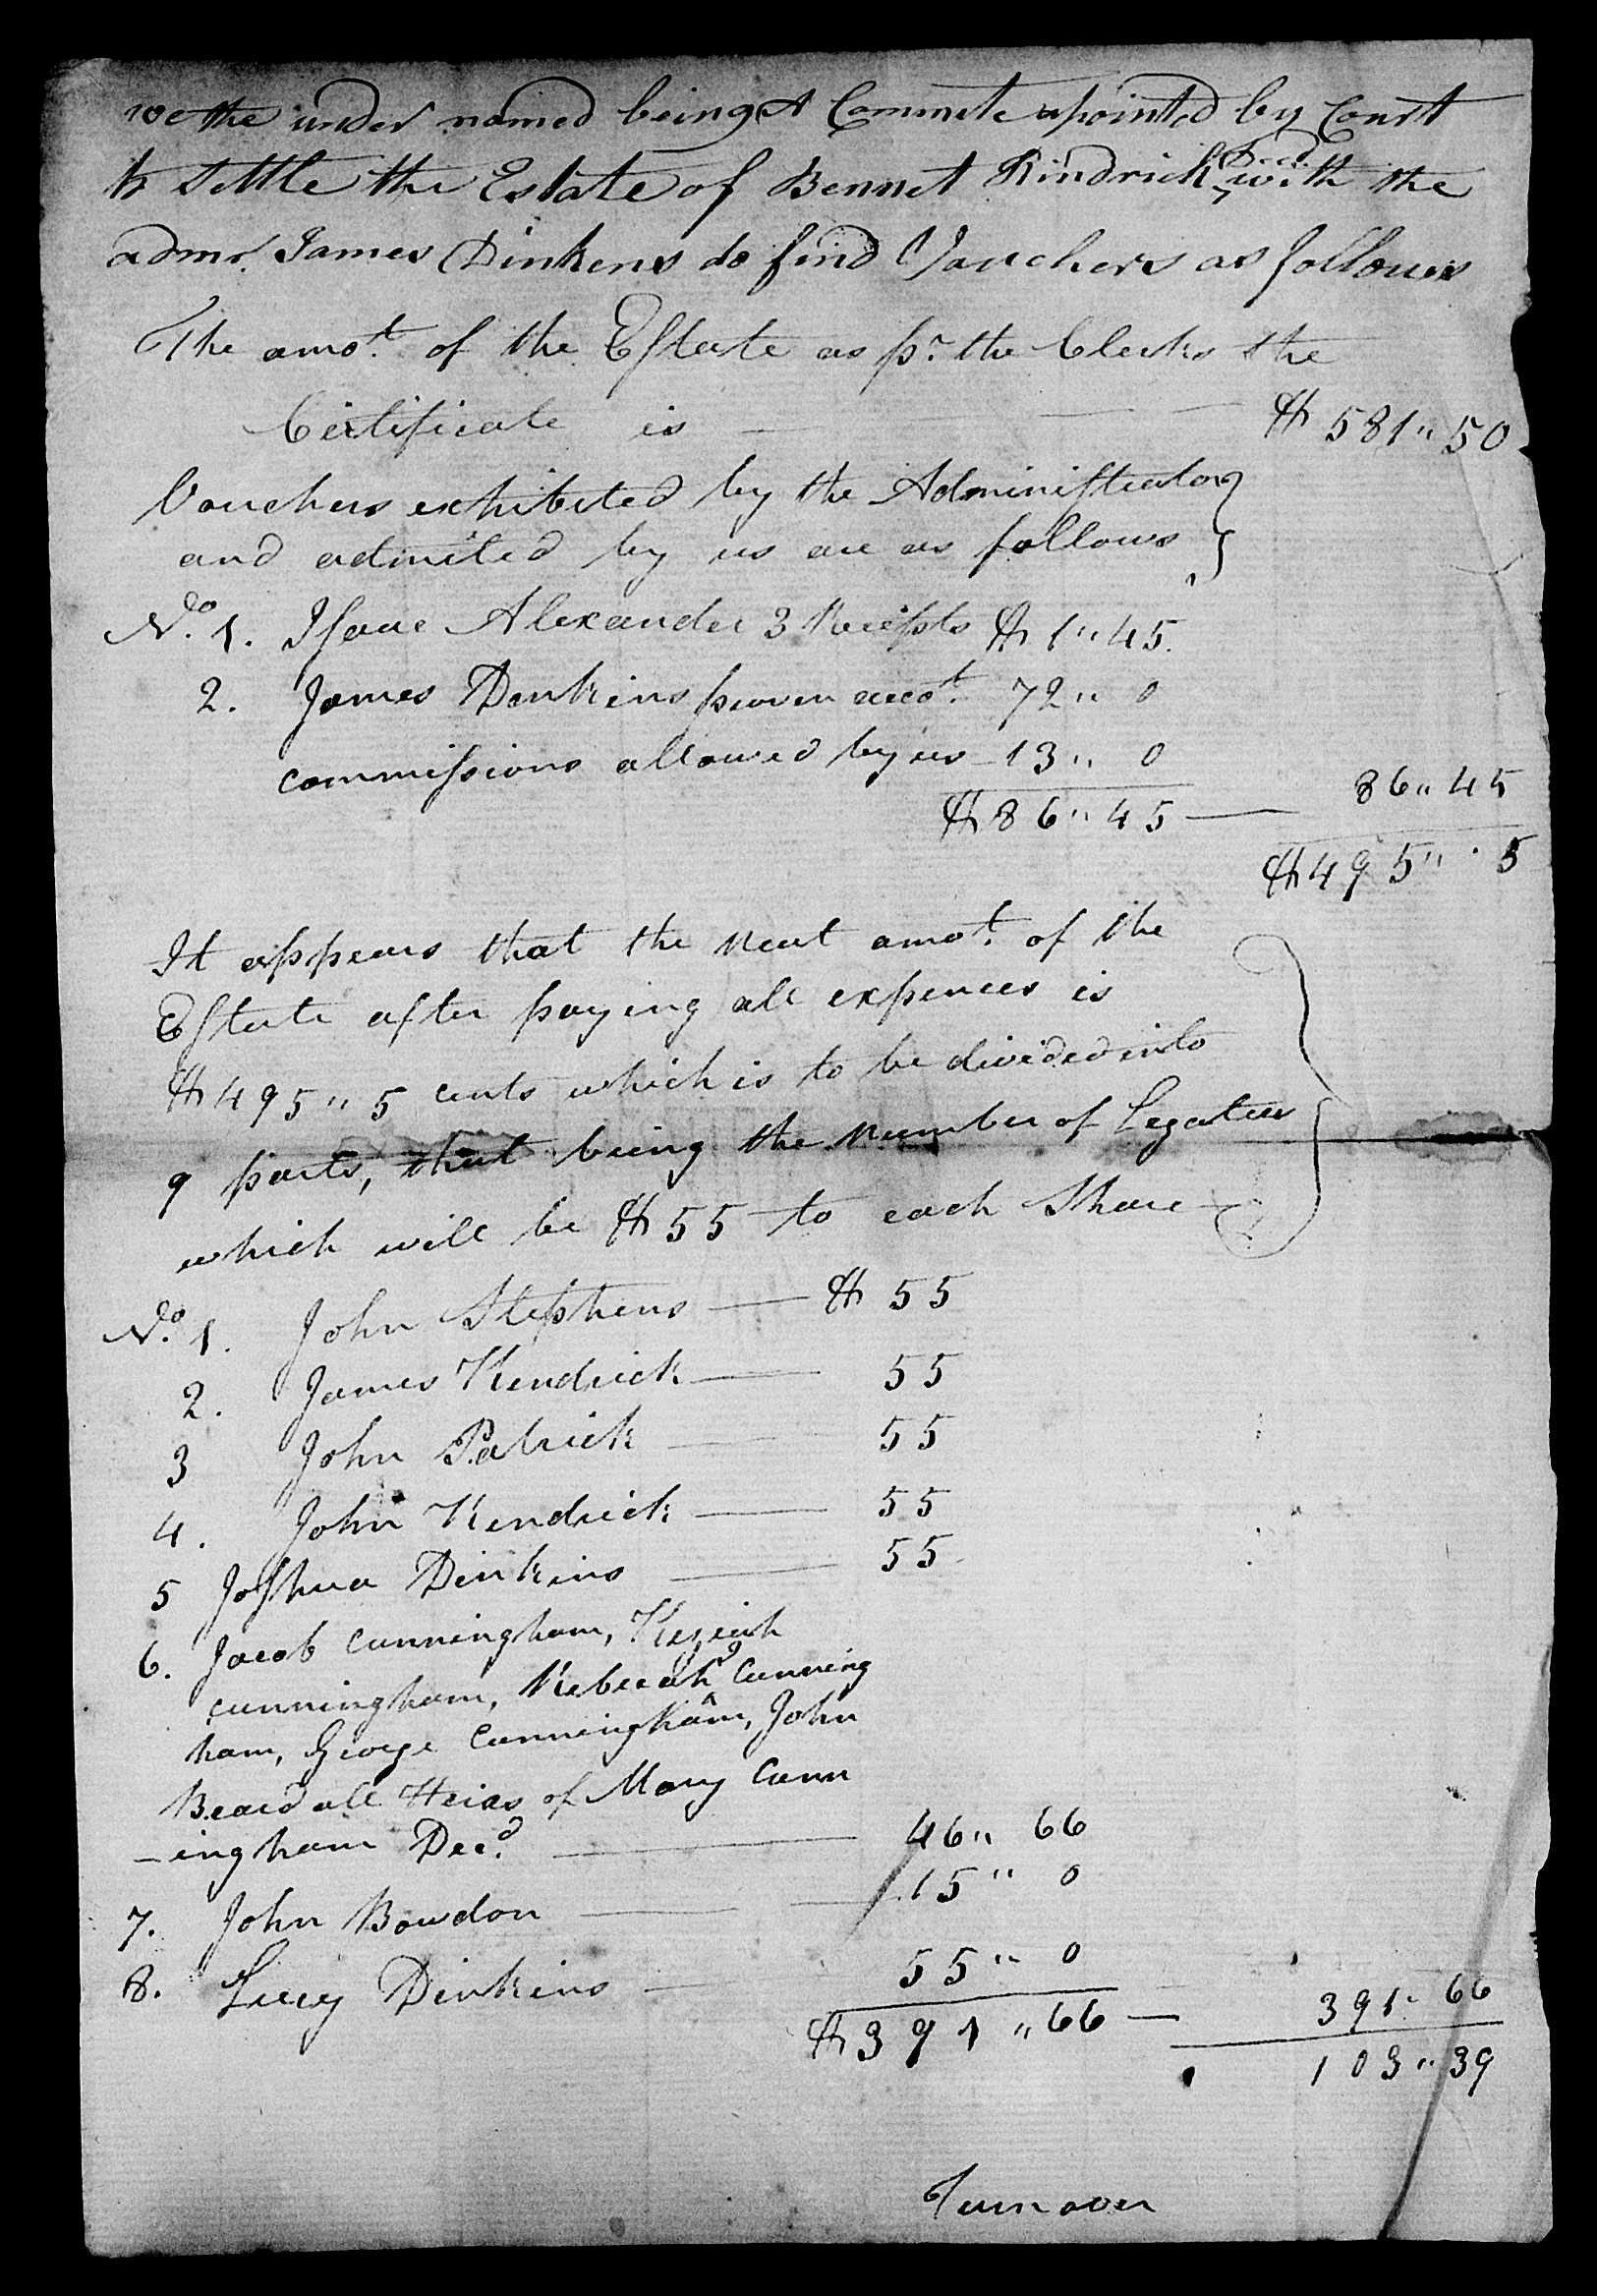 we the under named being A Commite apointed by Court
to Settle the Estate of Bennet Kindrick Decd. with the
admr. James Dinkens do find Vouchers as follows
The amot. of the Estate as pr. the Clerks the
Certificate is — $ 581 " 50
Vouchers exhibited by the Administrator
and admited by us are as follows
No. 1. Isaac Alexander 3 Receipts $ 1 " 45.
2. James Dinkins proven acco t. 72 " 0
commissions allowed by us - 13 " 0
$ 86 " 45 — 86 " 45
$ 495 " . 5
It appears that the neat amot. of the
Estate after paying all expences is
$ 495 " 5 cents which is to be divided into
9 parts, that being the number of Legatees
which will be $ 55 to each Share
No. 1. John Stephens — $ 55
2. James Kendrick — 55
3 John Patrick — 55
4. John Kendrick — 55
5 Joshua Dinkins — 55
6. Jacob Cunningham, Keziah
cunningham, Rebecah Cunning
ham, George Cunningham, John
Beard all Heirs of Mary Cunn
-ingham Decd. — 46 " 66
7. John Bowdon — 15 " 0
8. Lucy Dinkins — 55 " 0
$ 391 " 66 — 391 " 66
103 " 39
Turn over